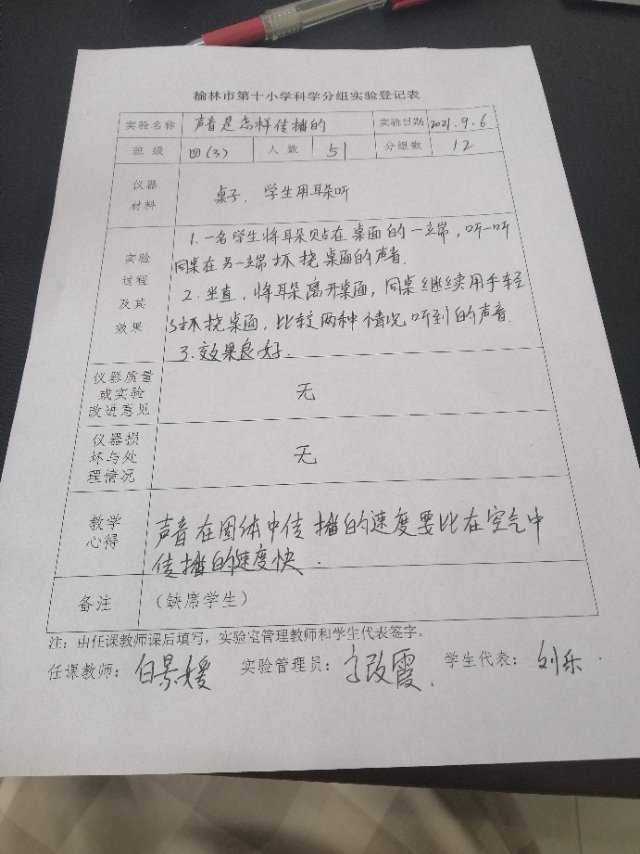 榆林市第十小学科学分组实验登记表
实验名称 声音是怎样传播的 实验日期 2021.9.6
班级 四(3) 人数 51 分组数 12
仪器材料 桌子、学生用耳听
实验过程及其效果
1.一名学生将耳朵贴在桌面的一端,听一听
同桌在另一端抓挠桌面的声音.
2.坐直,将耳朵离开桌面,同桌继续用手轻
轻抓挠桌面,比较两种个情况听到的声音
3.效果良好.
仪器质量或实验改进意见 无
仪器损坏与处理情况 无
教学心得 声音在固体中传播的速度要比在空气中
传播的速度快.
备注 (缺席学生)
注:由任课教师课后填写,实验室管理教师和学生代表签字。
任课教师:白景媛 实验管理员:改霞 学生代表:刘乐